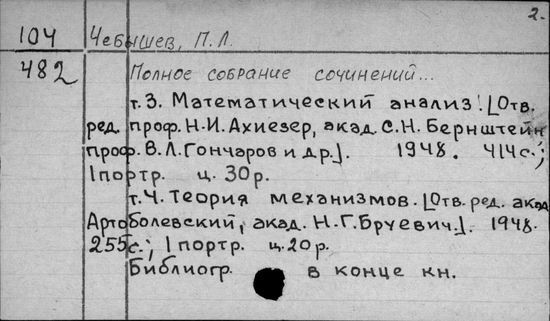 2.
104 Чебышев, П.Л.
482 Полное собрание сочинений...
т.3. Математический анализ. [Отв.
ред. проф. Н.И. Ахиезер, акад. С.Н. Бернштейн
проф. В.Л. Гончаров и др.]. 1948. 414с.;
1портр. ц. 30р.
т.4. Теория механизмов. [Отв. ред. акад
Артоболевский, акад. Н.Г. Бруевич.]. 1948.
255с.; 1 портр. ц. 20р.
Библиогр. в конце кн.